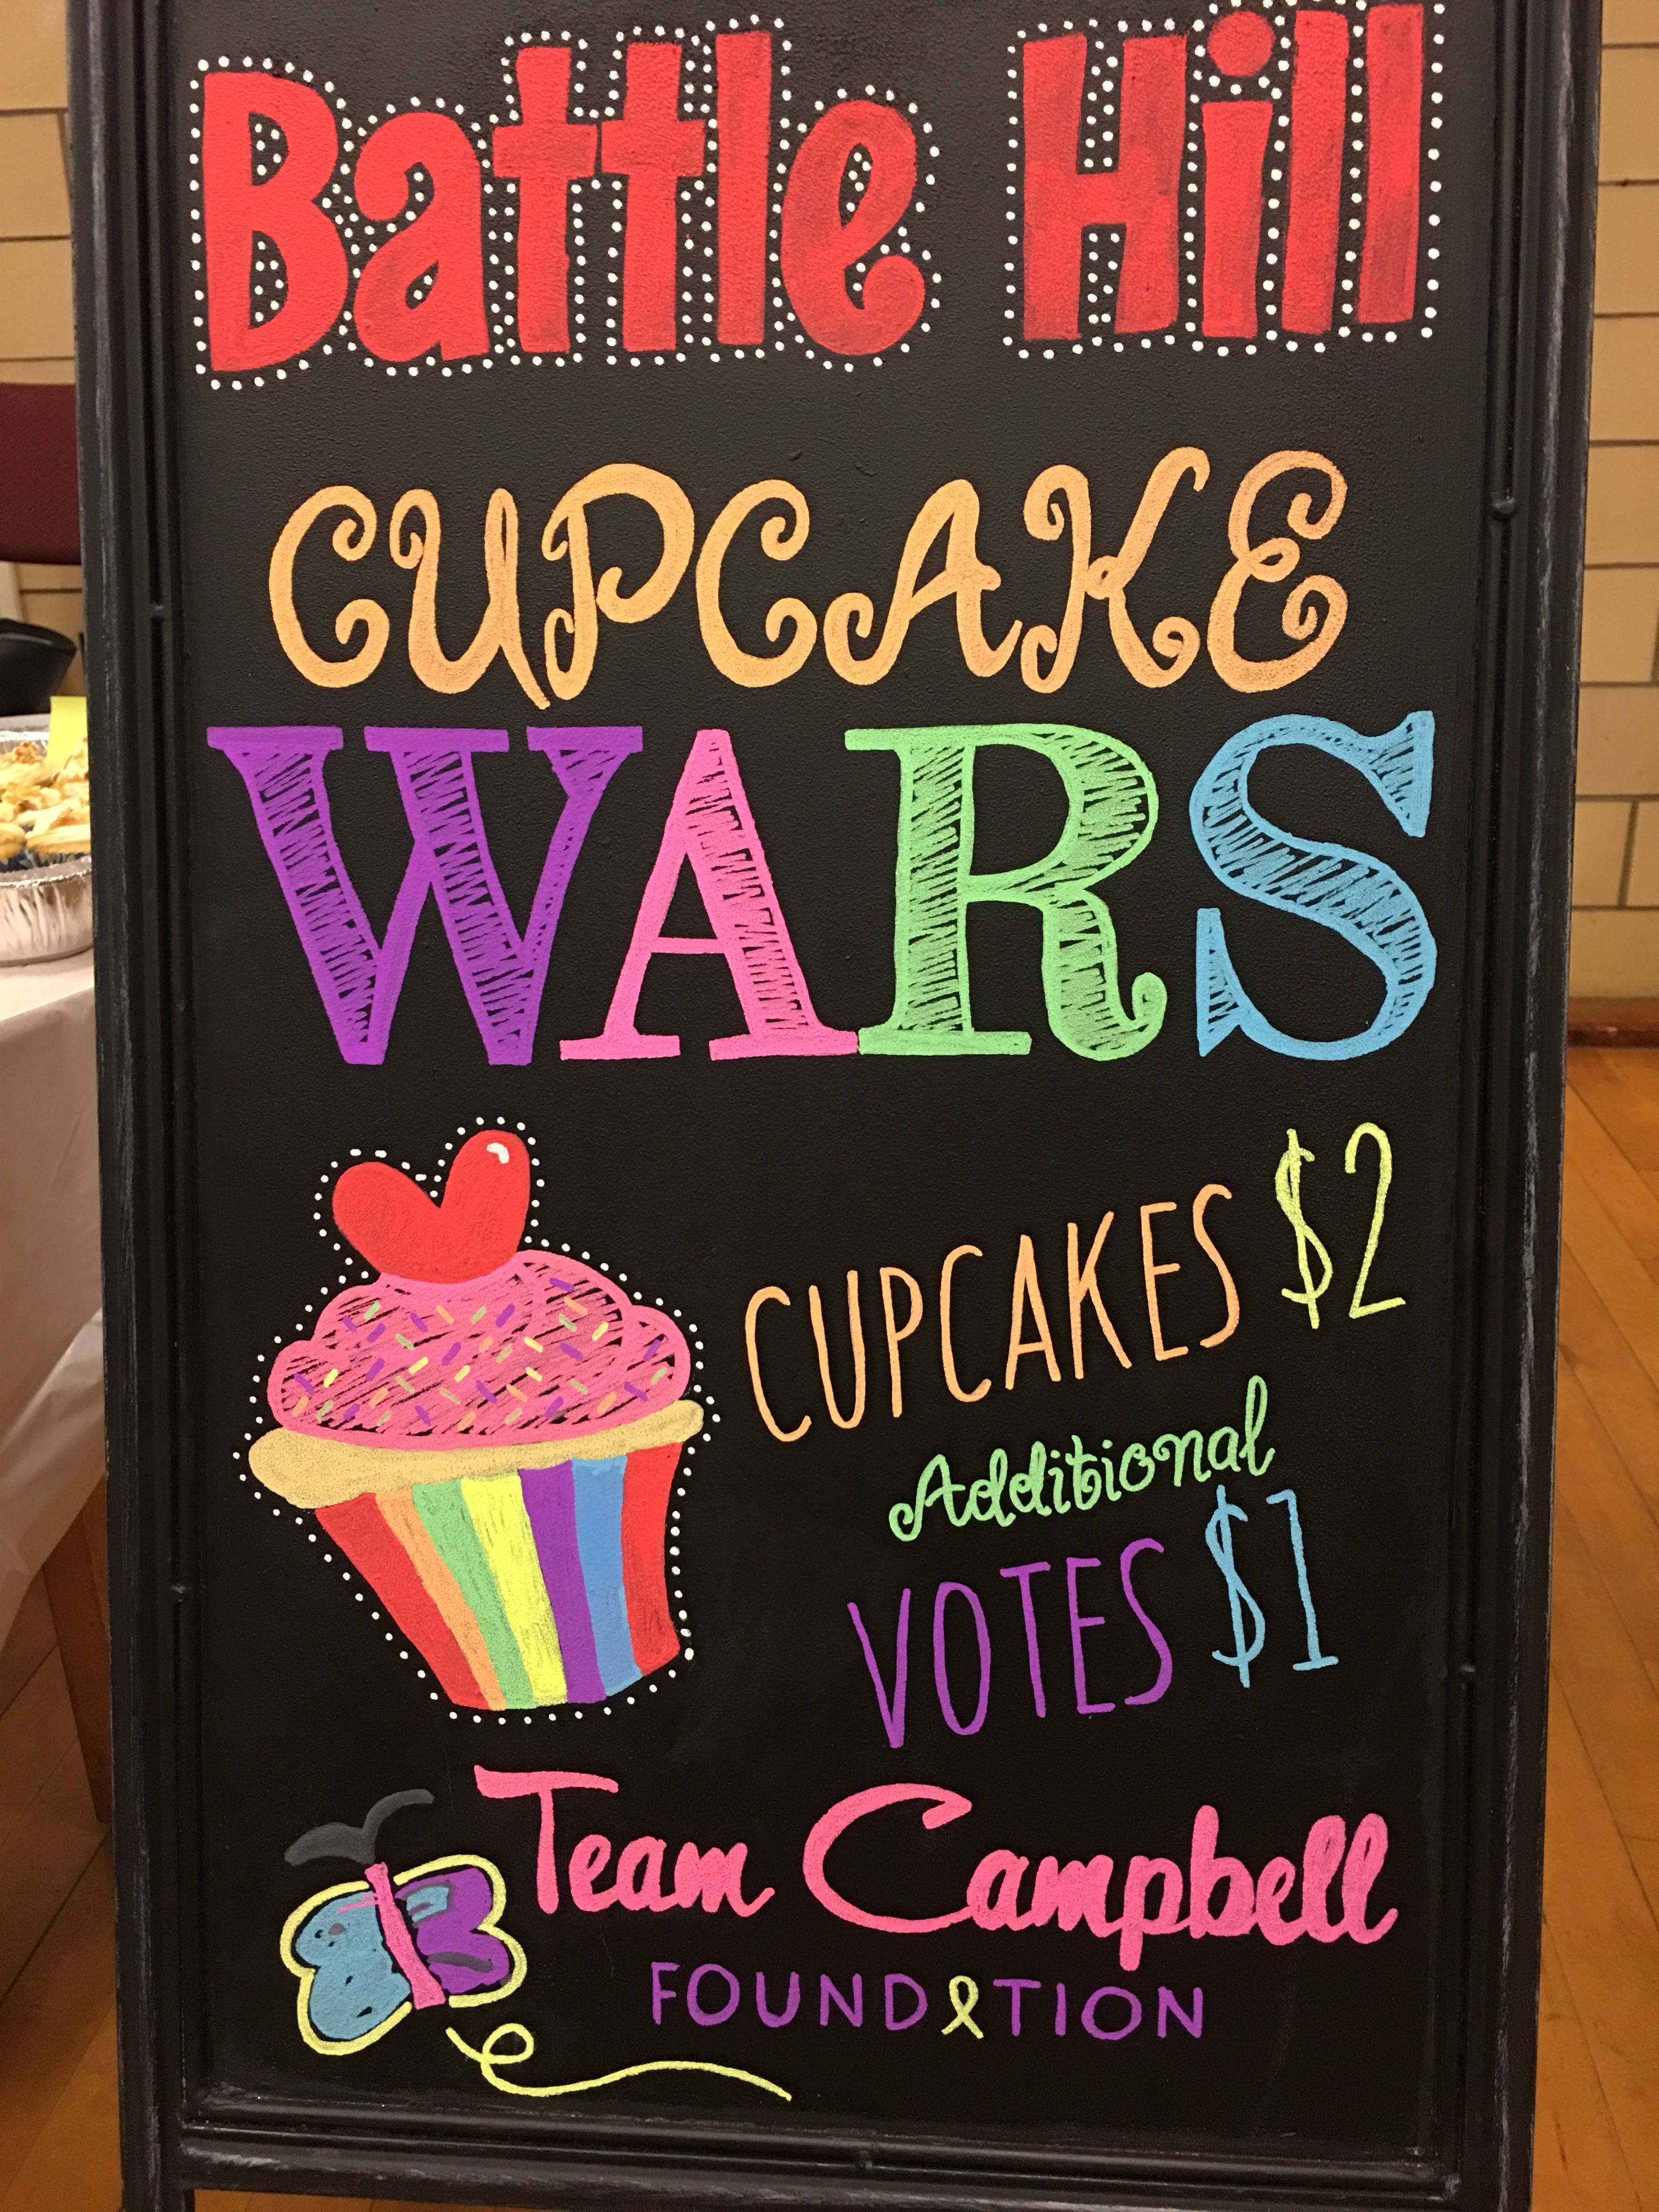 Battle Hill
CUPCAKE
WARS
CUPCAKES $2
Additional
VOTES $1
Team Campbell
FOUNDATION